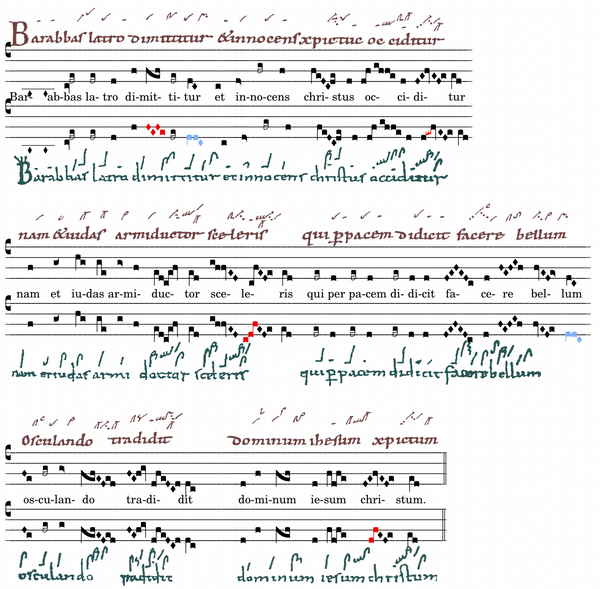 Barabbas latro dimittitur & innocens xpictuc oc ciditur
Bar- ab-bas la- tro di-mit- ti- tur et in-no-cens chri- stus oc- ci- di- tur
Barabbas latro dimittitur et innocens christus occiditur
nam & iudas armiductor sceleris qui p pacem didicit facere bellum
nam et iu-das ar-mi- duc- tor sce- le- ris qui per pa-cem di-di-cit fa- ce- re bel- lum
nam et iudas armi ductor sceleris qui p pacem didicit facere bellum
Osculando tradidit dominum ihesum xpictum
os-cu-lan- do tra-di- dit do-mi-num ie-sum chri- stum.
osculando tradidit dominum iesum christum